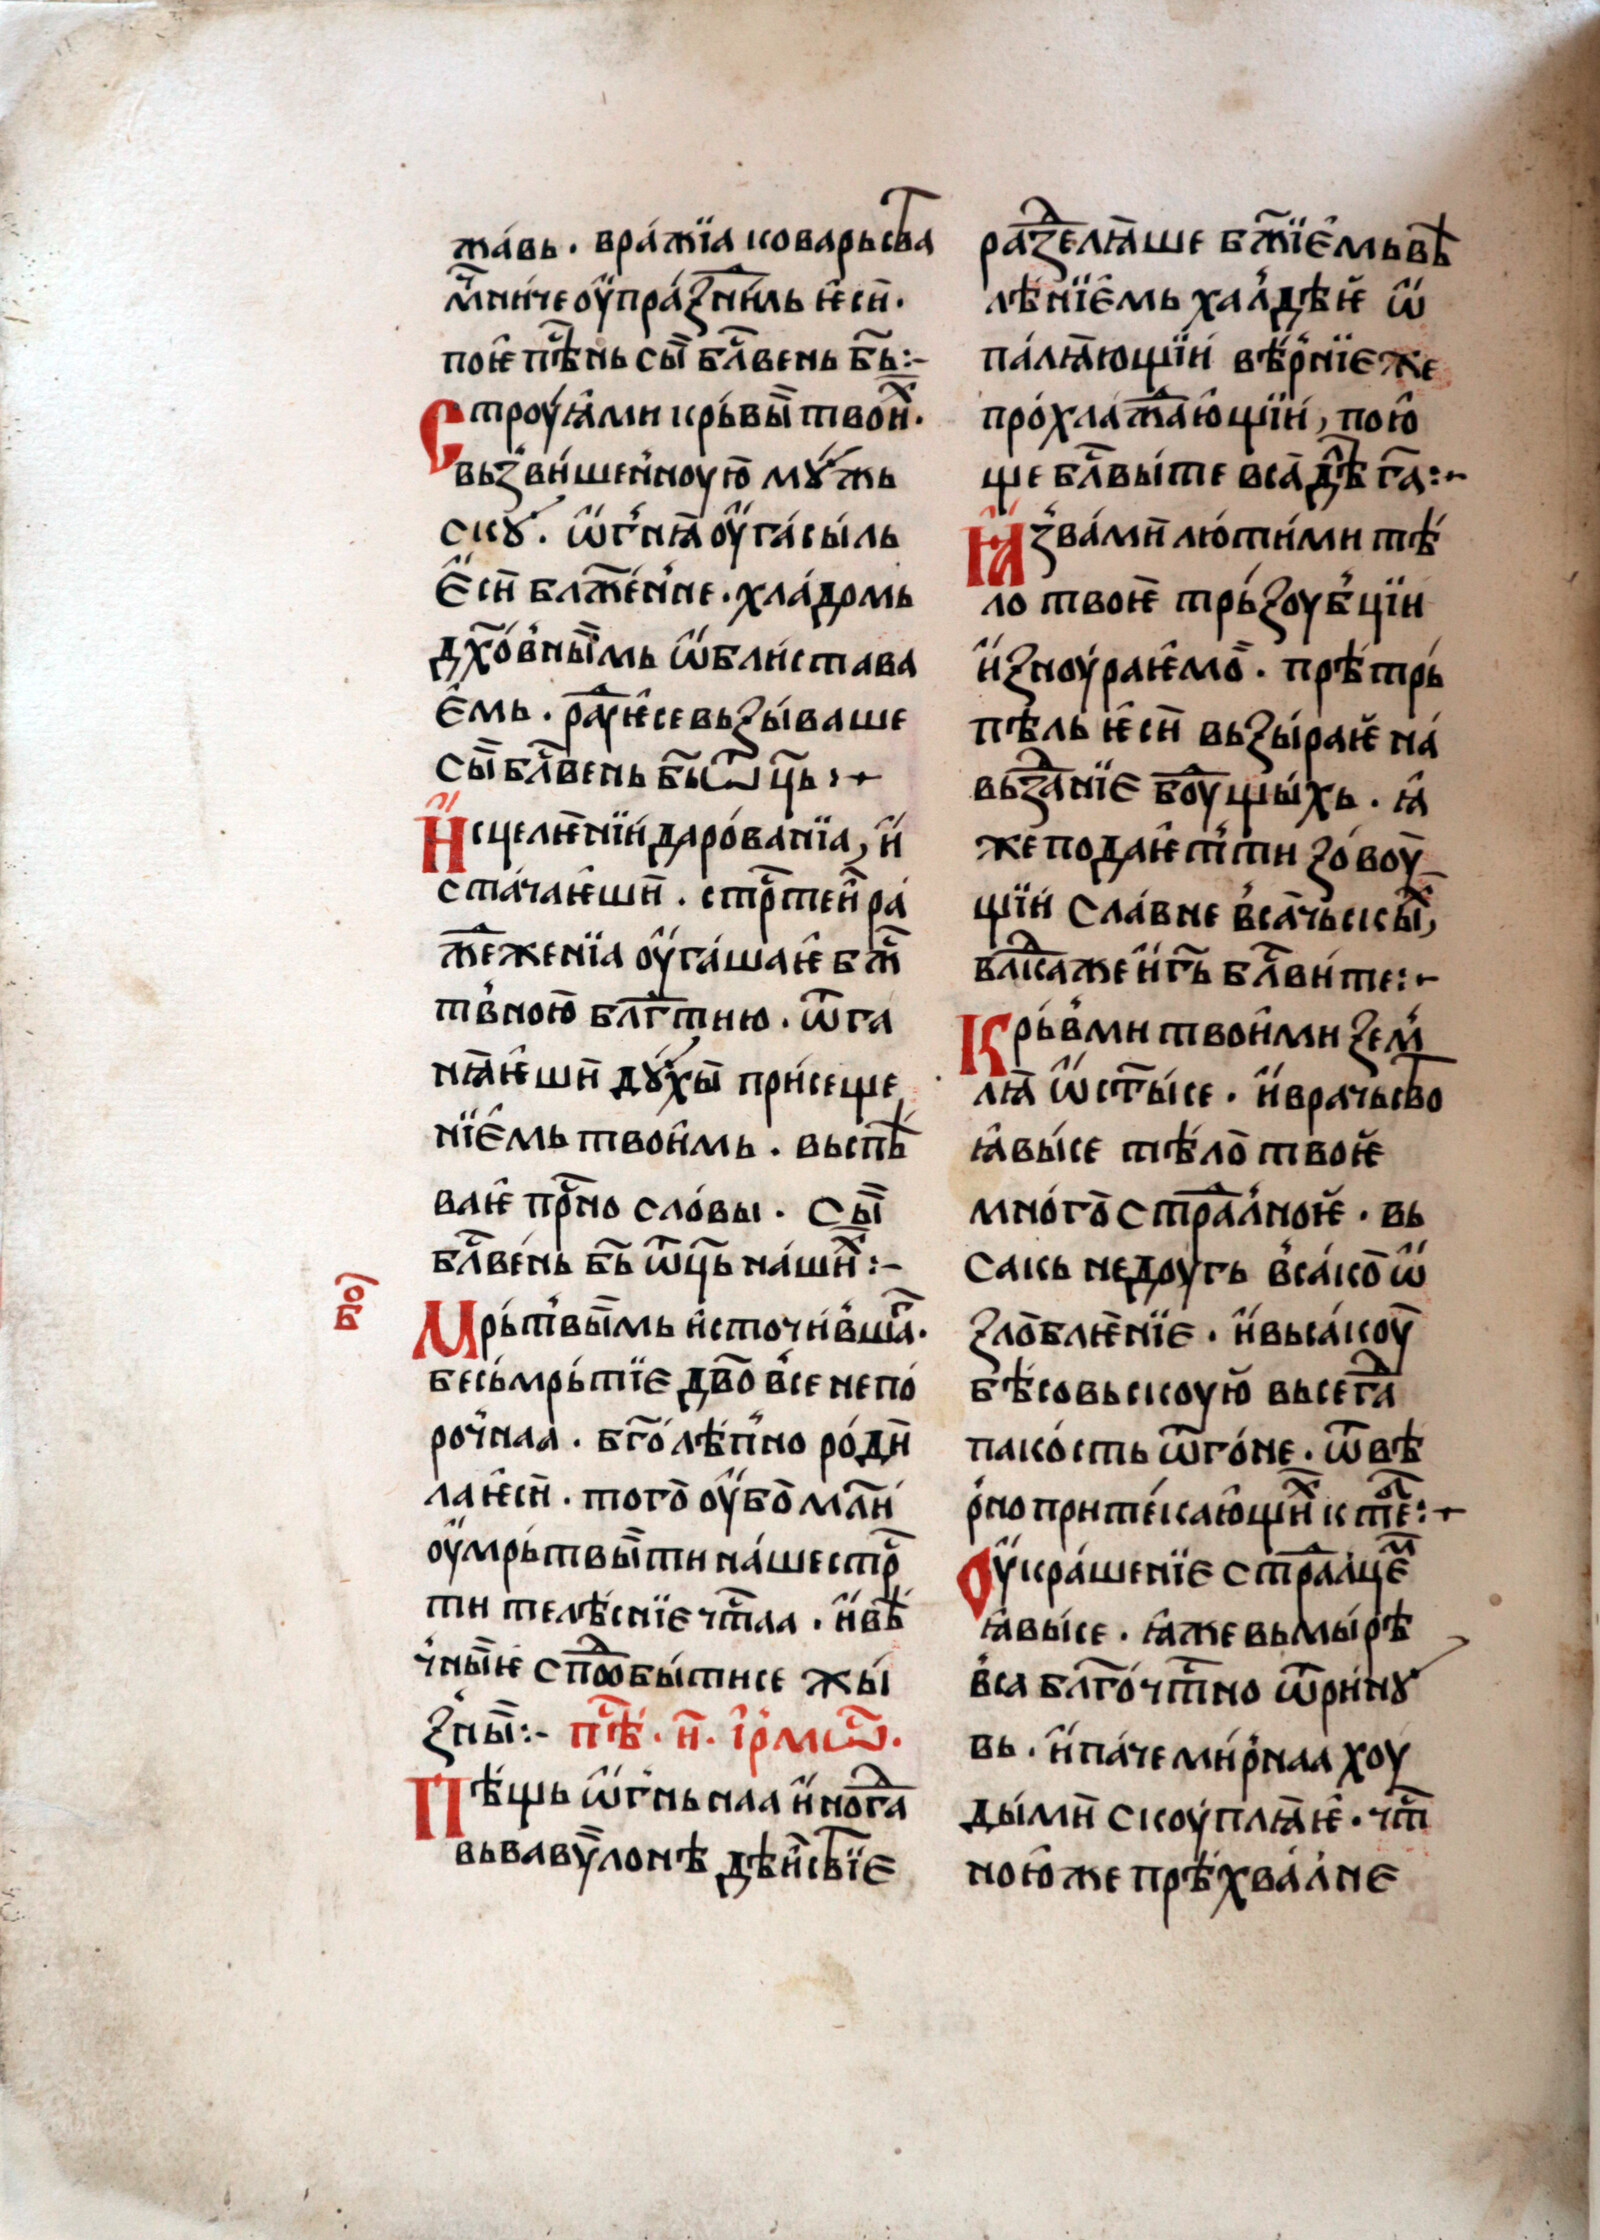 жавь . вра́жїа коварьства
м҃ниче оу҆пра́знⷣиль ѥ҆си̏ .
поѥ̂ пѣⷭ҇нь сы҃и бл҃вень бь҃ :–
Строуꙗ҆ми крь́вы̏ твои̏ⷯ .
вьзви́шен̾ноую̑ мꙋ́жь
скꙋ̀ . ѡ҆г̾нꙗ̑ оу҆га́сы́ль
є҆си̏ блаже́н̾не . хла́домь
дх҃о́в̾ны̏мь ѡ҆бли́става
є҆мь . раꙣꙋѥ҆се вьзы́ваше
сы҃и бл҃вень бь҃ ѿць҃ :~
И҆сцелѥ́нїи́ даро́ванїа , и҆
ста́чаѥ̂ши̏ . стрⷭ҇теи̏ ра́
жⷣежєнїа оу҆га́шаѥ̂ бж҃
тв҃ною̑ блгⷣтию . ѿга
нꙗ̑ѥ̂ши̏ дꙋ́хы̏ при́сеще
нїе̂мь твои̂мь . выспѣ́
ваѥ̂ прⷭ҇но сло́вы . сы҃и
бл҃ве́нь бь҃ ѿць҃ на́ши̏ⷯ :–
бо҃
Мрь́твы̏мь источи́в̾шаⷢ .
бесь́мрь́тїе дв҃о в̾се непо́
роч̾наа . бг҃о́лѣ́п̾но ро́ди̏
лаѥ̂си̏ . того̑ оу҆бо̑ мл҃и́
оу҆мрь́твы̏ти на́ше стрⷭ҇
ти тєлѣ́снїе чⷭ҇таа . и҆вѣ́
ч̾ны̏ѥ спⷣо́бы́тисе жы́
зны̏ :– пѣⷭ҇ . и҃ . і҆рмѡⷭ҇ .
Пѣ́щь ѡ҆г̾ньнаа и҆ногⷣа
вьваву̏лонѣ дѣи̏ствїе
разⷣеля́ше бж҃їе̂мь вѣ́
лѣ́нїе̂мь хал̾дѣѥ̂ ѡ҆
па́лꙗ̑ющїи́ вѣ́р̾нїе же
про́хлажⷣаю̂щїи́ , пою̂
ще бл҃вы́те вса̑ дѣ́ла гⷭ҇а :~
Ꙗ҆зва́ми̏ лю́ти́ми тѣ́
ло твоѥ̑ трь́зоуб̾цїи
и҆зноу́раѥ̂мо̑ . прѣ́трь́
пѣль ѥ̂си̏ вьзы́раѥ̂ на́
вьзⷣанїе боуⷣщы́хь . ꙗ҆
же подаѥ̂ть̏ ти зо́воу̑
щїи́ сла́вне в̾са́чьскы̏ ,
влⷣка же и҆ гь҃ бл҃ви́те :~
Крь́в̾ми твои̂ми зем̾
лꙗ̑ ѡ҆ст҃ы́се . и҆врачьство
ꙗ҆вы́се тѣ́ло̑ твоѥ̑
мно́го̑страⷣл̾ноѥ̑ . вь
сакь недроугь в̾са́ко̑ ѡ҆
зло̑блѥ́нїе . и҆вьса́коу̑
бѣ́совьскоую̑ вьсегⷣа
пако́сть ѿго́не . ѿ вѣ́
р̾но при́те́каю̂щи̏ⷯ к те̑ⷠ :~
Оу҆кра́шенїе страⷣлце̏ⷨ
ꙗ҆вы́се . ꙗ҆же вьмы́рѣ
в̾са бл҃го́чⷭ҇тно ѿри́нꙋ
вь . и҆па́че ми́р̾наа хоу
ды́ми̏ скоу́плꙗ̑ѥ̂ . чⷭ҇т
ною̂же прѣ́хва́л̾не